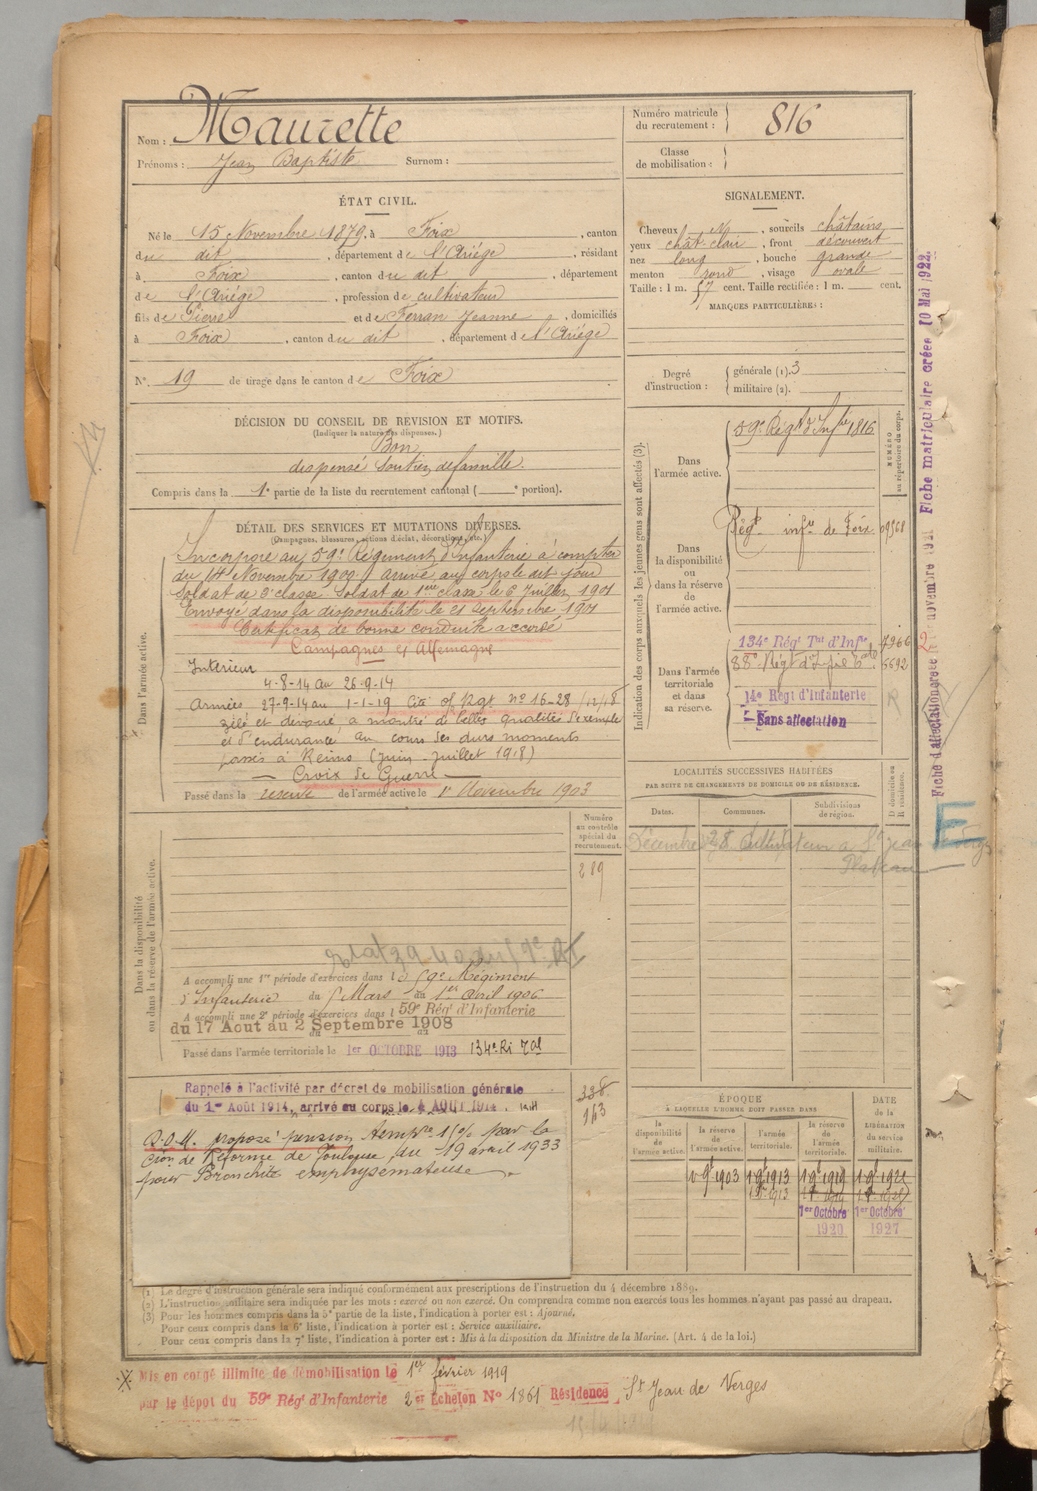 Nom : Maurette
Prénoms : Jean Baptiste Surnom :
Numéro matricule du recrutement : 816
Classe de mobilisation :
ÉTAT CIVIL.
Né le 15 Novembre 1879, à Foix, canton
du dit, département de l'Ariége, résidant
à Foix, canton du dit, département
de l'Ariége, profession de cultivateur
fils de Pierre et de Ferran Jeanne, domiciliés
à Foix, canton du dit, département de l'Ariége
N° 19 de tirage dans le canton de Foix
SIGNALEMENT.
Cheveux N, sourcils châtains
yeux chat. clair, front découvert
nez long, bouche grande
menton rond, visage ovale
Taille : 1 m. 57 cent. Taille rectifiée : 1 m. cent.
MARQUES PARTICULIÈRES :
Degré d'instruction : générale (1). 3
militaire (2).
DÉCISION DU CONSEIL DE REVISION ET MOTIFS.
(Indiquer la nature des dispenses.)
Bon
dispensé Soutien de famille.
Compris dans la 1e partie de la liste du recrutement cantonal ( e portion).
DÉTAIL DES SERVICES ET MUTATIONS DIVERSES.
(Campagnes, blessures, actions d'éclat, décorations, etc.)
Dans l'armée active.
Incorporé au 59e Régiment d'Infanterie à compter
du 14 Novembre 1900. arrivé au corps le dit jour
Soldat de 2e classe. Soldat de 1ere classe le 6 Juillet 1901
Envoyé dans la disponibilité le 21 Septembre 1901
Certificat de bonne conduite accordé
Campagnes et Allemagne
Intérieur
4-8-14 au 26-9-14
Armées 27-9-14 au 1-1-19 Cité of Rgt n° 16-28 /12/18
zélé et dévoué, a montré de belles qualités d'exemple
et d'endurance au cours des durs moments
passés à Reims (Juin - Juillet 1918)
Croix de Guerre
Passé dans la réserve de l'armée active le 1er Novembre 1903
Indication des corps auxquels les jeunes gens sont affectés (3).
NUMÉRO au répertoire du corps.
Dans l'armée active.
59e Régt d'Infie 1816
Dans la disponibilité ou dans la réserve de l'armée active.
Régt infie de Foix 09568
Dans l'armée territoriale et dans sa réserve.
134e Régt Tal d'Infie 4966
88e Régt d'Infie 5592
14e Régt d'Infanterie
Sans affectation
Fiche matriculaire créée 10 Mai 1922.
Fiche d'affectation créée novembre 1921
E
LOCALITÉS SUCCESSIVES HABITÉES
PAR SUITE DE CHANGEMENTS DE DOMICILE OU DE RÉSIDENCE.
Dates. Communes. Subdivisions de région. D domicile ou R résidence.
Décembre 28 Cultivateur à St Jean de Verges
Plateau
Dans la disponibilité ou dans la réserve de l'armée active.
Numéro au contrôle spécial du recrutement.
289
A accompli une 1re période d'exercices dans le 59e Régiment
d'Infanterie du 5 Mars au 1er Avril 1906
A accompli une 2e période d'exercices dans le 59e Régt d'Infanterie
du 17 Aout au 2 Septembre 1908
Passé dans l'armée territoriale le 1er OCTOBRE 1913 134e Ri Tal
Rappelé à l'activité par décret de mobilisation générale
du 1er Août 1914, arrivé au corps le 4 AOUT 1914.
338
143
R.O.M. proposé pension tempre 15% par la
Cion de Réforme de Toulouse du 19 avril 1933
pour Bronchite emphysemateuse.
ÉPOQUE
À LAQUELLE L'HOMME DOIT PASSER DANS
DATE DE LA LIBÉRATION du service militaire.
la disponibilité de l'armée active. la réserve de l'armée active. l'armée territoriale. la réserve de l'armée territoriale.
1 9bre 1903 1 9bre 1913 1 9bre 1919 1 9bre 1921
1er Octobre 1er Octobre
1920 1927
(1) Le degré d'instruction générale sera indiqué conformément aux prescriptions de l'instruction du 4 décembre 1889.
(2) L'instruction militaire sera indiquée par les mots : exercé ou non exercé. On comprendra comme non exercés tous les hommes n'ayant pas passé au drapeau.
(3) Pour les hommes compris dans la 5e partie de la liste, l'indication à porter est : Ajourné.
Pour ceux compris dans la 6e liste, l'indication à porter est : Service auxiliaire.
Pour ceux compris dans la 7e liste, l'indication à porter est : Mis à la disposition du Ministre de la Marine. (Art. 4 de la loi.)
Mis en congé illimité de démobilisation le 1er février 1919
par le dépot du 59e Régt d'Infanterie 2er Echelon N° 1861 Résidence, St Jean de Verges